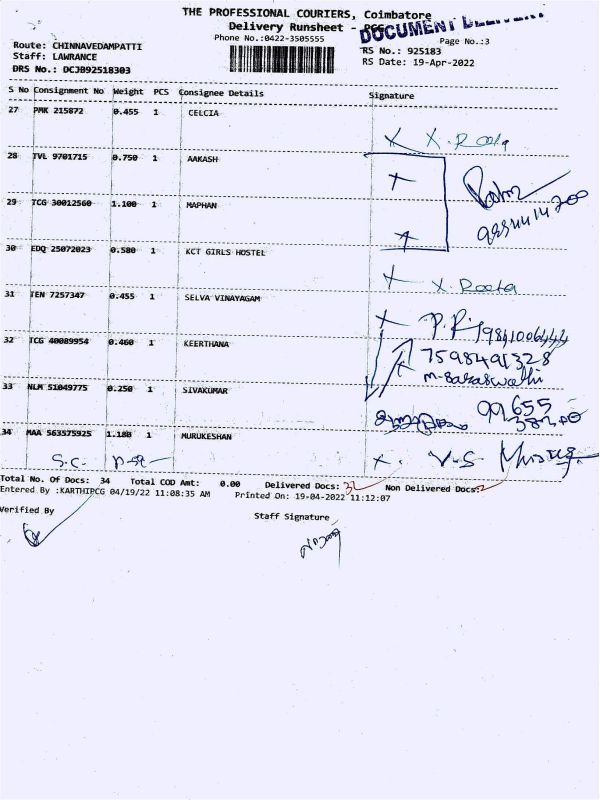 THE PROFESSIONAL COURIERS, Coimbatore
Delivery Runsheet - PCG
DOCUMENT
Phone No.:0422-3505555
Page No.:3
Route: CHINNAVEDAMPATTI
RS No.: 925183
Staff: LAWRANCE
RS Date: 19-Apr-2022
DRS No.: DCJB92518303
S No Consignment No Weight PCS Consignee Details Signature
27 PMK 215872 0.455 1 CELCIA
X X. Reeta
28 TVL 9701715 0.750 1 AAKASH
X
29 TCG 30012560 1.100 1 MAPHAN
9884414200
X
30 EDQ 25072023 0.580 1 KCT GIRLS HOSTEL
X X. Reeta
31 TEN 7257347 0.455 1 SELVA VINAYAGAM
X P.R. 9841006444
32 TCG 40089954 0.460 1 KEERTHANA
X 7598491328
m-Saraswathi
33 NLM 51049775 0.250 1 SIVAKUMAR
99655
34 MAA 563575925 1.180 1 MURUKESHAN
S.C. X. V.S
Total No. Of Docs: 34 Total COD Amt: 0.00 Delivered Docs: 32 Non Delivered Docs: 2
Entered By :KARTHIPCG 04/19/22 11:08:35 AM Printed On: 19-04-2022 11:12:07
Verified By
Staff Signature